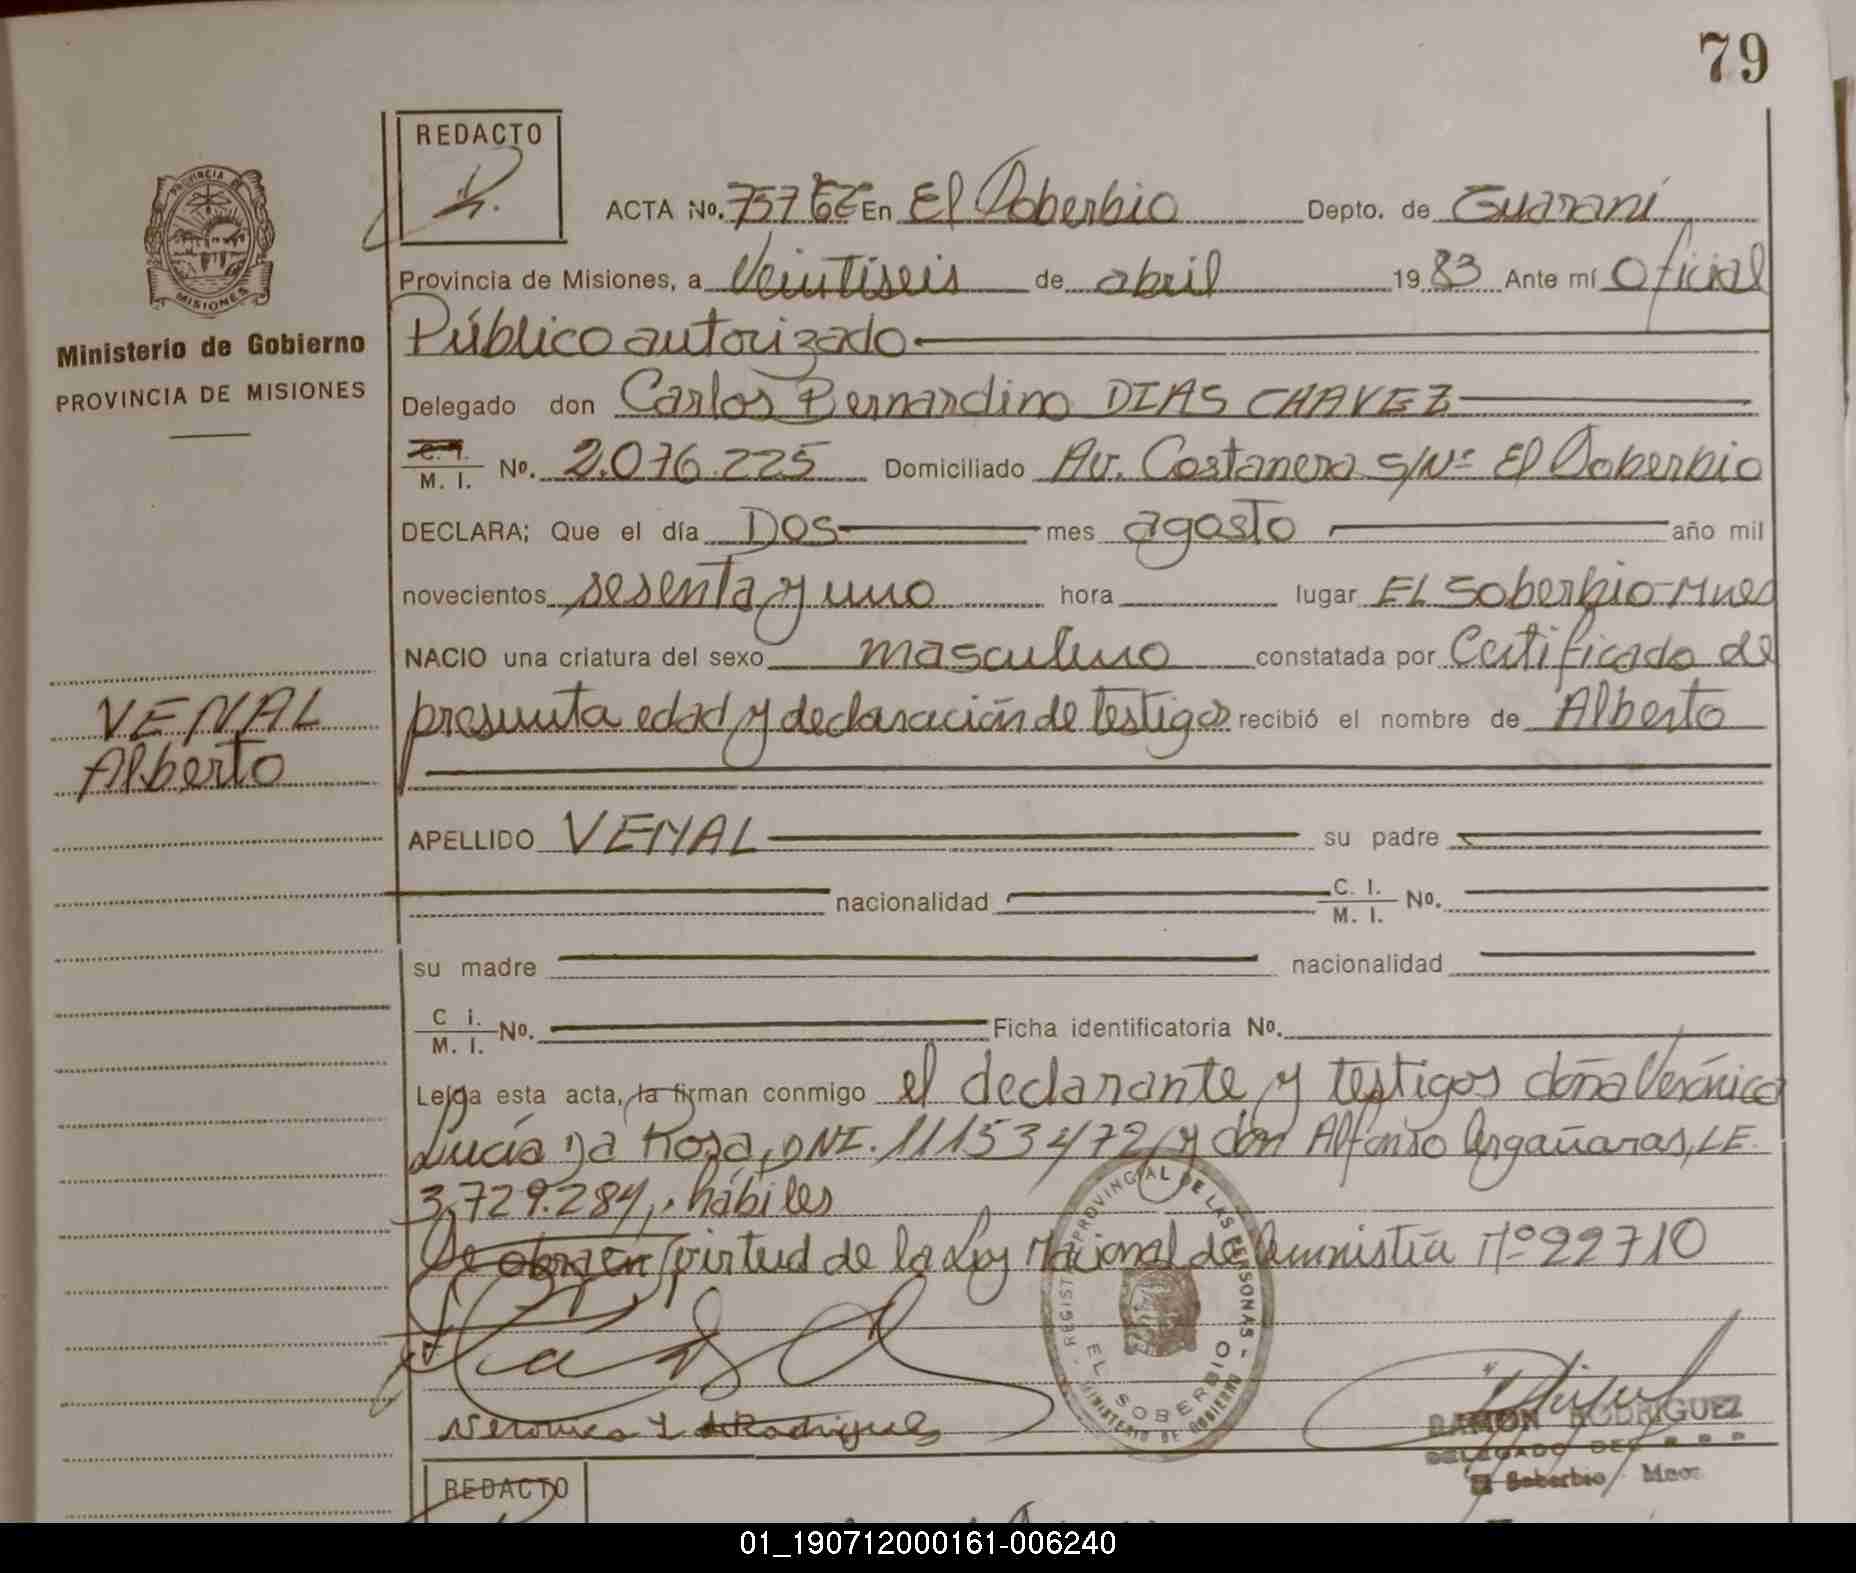 79
REDACTO
PROVINCIA DE
MISIONES
Ministerio de Gobierno
PROVINCIA DE MISIONES
ACTA No. 757 En El Soberbio Depto. de Guaraní
Provincia de Misiones, a Veintiseis de abril 1983 Ante mí Oficial
Público autorizado
Delegado don Carlos Bernardino DIAS CHAVEZ
C. I. M. I. No. 2.076.225 Domiciliado Av. Costanera S/Nº El Soberbio
DECLARA; Que el día Dos mes agosto año mil
novecientos sesenta y uno hora lugar EL Soberbio-Mnes
NACIO una criatura del sexo masculino constatada por Certificado de
presunta edad y declaración de testigos recibió el nombre de Alberto
VENAL
Alberto
APELLIDO VENAL su padre
nacionalidad C. I. M. I. No.
su madre nacionalidad
C I. M. I. No. Ficha identificatoria No.
Leída esta acta, la firman conmigo el declarante y testigos doña Verónica
Lucía Da Rosa, DNI. 11153472, y don Alfonso Argañaras, LE.
3.729.284, hábiles
Se obra en virtud de la Ley Nacional de Amnistía Nº 22710
REGISTRO PROVINCIAL DE LAS PERSONAS
EL SOBERBIO
MINISTERIO DE GOBIERNO
Veronica L. Rodrigues
RAMON RODRIGUEZ
DELEGADO DEL R P P
El Soberbio Mnes.
REDACTO
01_190712000161-006240